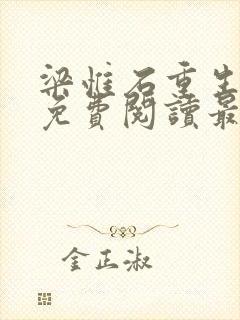 梁惟石重生
免費閱讀最
金正淑